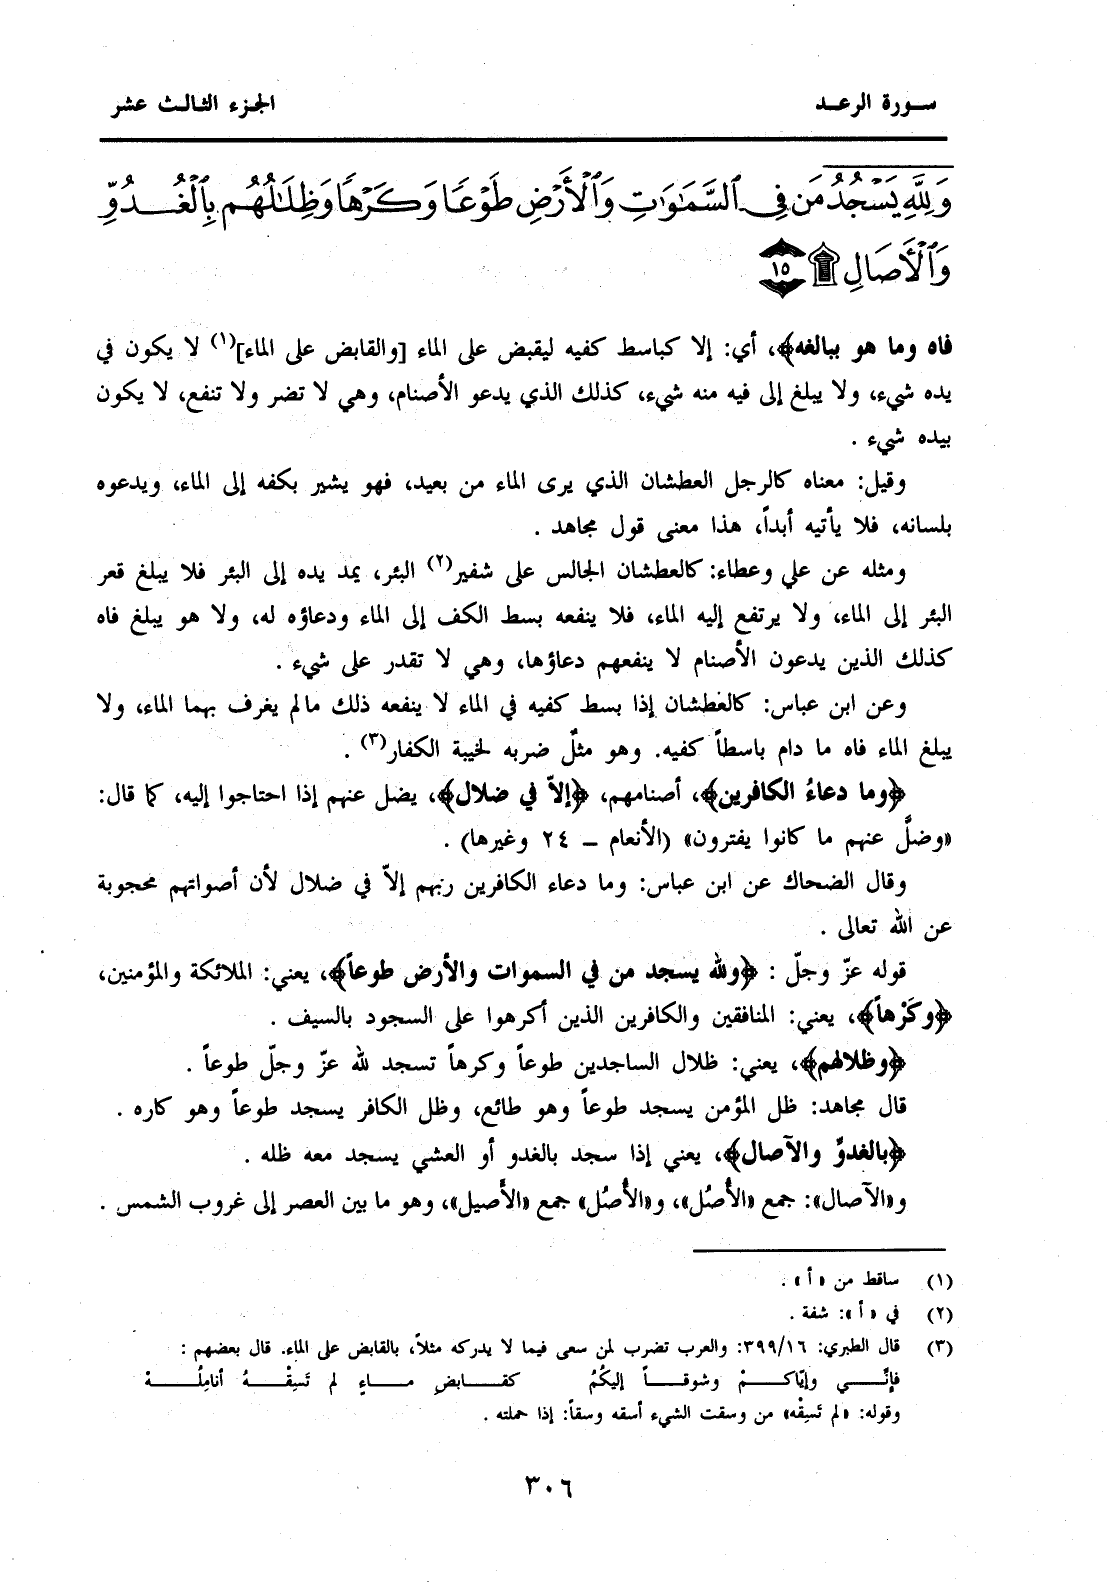 سورة الرعد
الجزء الثالث عشر
وَلِلَّهِ يَسْجُدُ مَن فِي السَّمَاوَاتِ وَالْأَرْضِ طَوْعًا وَكَرْهًا وَظِلَالُهُم بِالْغُدُوِّ
وَالْآصَالِ ۩ ١٥
فاه وما هو ببالغه﴾، أي: إلا كباسط كفيه ليقبض على الماء [والقابض على الماء](١) لا يكون في
يده شيء، ولا يبلغ إلى فيه منه شيء، كذلك الذي يدعو الأصنام، وهي لا تضر ولا تنفع، لا يكون
بيده شيء .
وقيل: معناه كالرجل العطشان الذي يرى الماء من بعيد، فهو يشير بكفه إلى الماء، ويدعوه
بلسانه، فلا يأتيه أبداً، هذا معنى قول مجاهد .
ومثله عن علي وعطاء: كالعطشان الجالس على شفير(٢) البئر، يمد يده إلى البئر فلا يبلغ قعر
البئر إلى الماء، ولا يرتفع إليه الماء، فلا ينفعه بسط الكف إلى الماء ودعاؤه له، ولا هو يبلغ فاه
كذلك الذين يدعون الأصنام لا ينفعهم دعاؤها، وهي لا تقدر على شيء .
وعن ابن عباس: كالعطشان إذا بسط كفيه في الماء لا ينفعه ذلك مالم يغرف بهما الماء، ولا
يبلغ الماء فاه ما دام باسطاً كفيه. وهو مثلٌ ضربه لخيبة الكفار(٣) .
﴿وما دعاءُ الكافرين﴾، أصنامهم، ﴿إلاّ في ضلال﴾، يضل عنهم إذا احتاجوا إليه، كما قال:
«وضلَّ عنهم ما كانوا يفترون» (الأنعام – ٢٤ وغيرها) .
وقال الضحاك عن ابن عباس: وما دعاء الكافرين ربهم إلاّ في ضلال لأن أصواتهم محجوبة
عن الله تعالى .
قوله عزّ وجلّ : ﴿ولله يسجد من في السموات والأرض طوعاً﴾، يعني: الملائكة والمؤمنين،
﴿وكَرْهاً﴾، يعني: المنافقين والكافرين الذين أكرهوا على السجود بالسيف .
﴿وظلالهم﴾، يعني: ظلال الساجدين طوعاً وكرهاً تسجد لله عزّ وجلّ طوعاً .
قال مجاهد: ظل المؤمن يسجد طوعاً وهو طائع، وظل الكافر يسجد طوعاً وهو كاره .
﴿بالغدوِّ والآصال﴾، يعني إذا سجد بالغدو أو العشي يسجد معه ظله .
و«الآصال»: جمع «الأُصُل»، و«الأُصُل» جمع «الأَصيل»، وهو ما بين العصر إلى غروب الشمس .
(١) ساقط من «أ» .
(٢) في «أ»: شفة .
(٣) قال الطبري: ٣٩٩/١٦: والعرب تضرب لمن سعى فيما لا يدركه مثلاً، بالقابض على الماء. قال بعضهم :
فإنّي وإيّاكمْ وشوقاً إليكُمُ كقابضِ ماءٍ لم تَسِقْهُ أنامِلُهْ
وقوله: «لم تَسِقْه» من وسقت الشيء أسقه وسقاً: إذا حملته .
٣٠٦